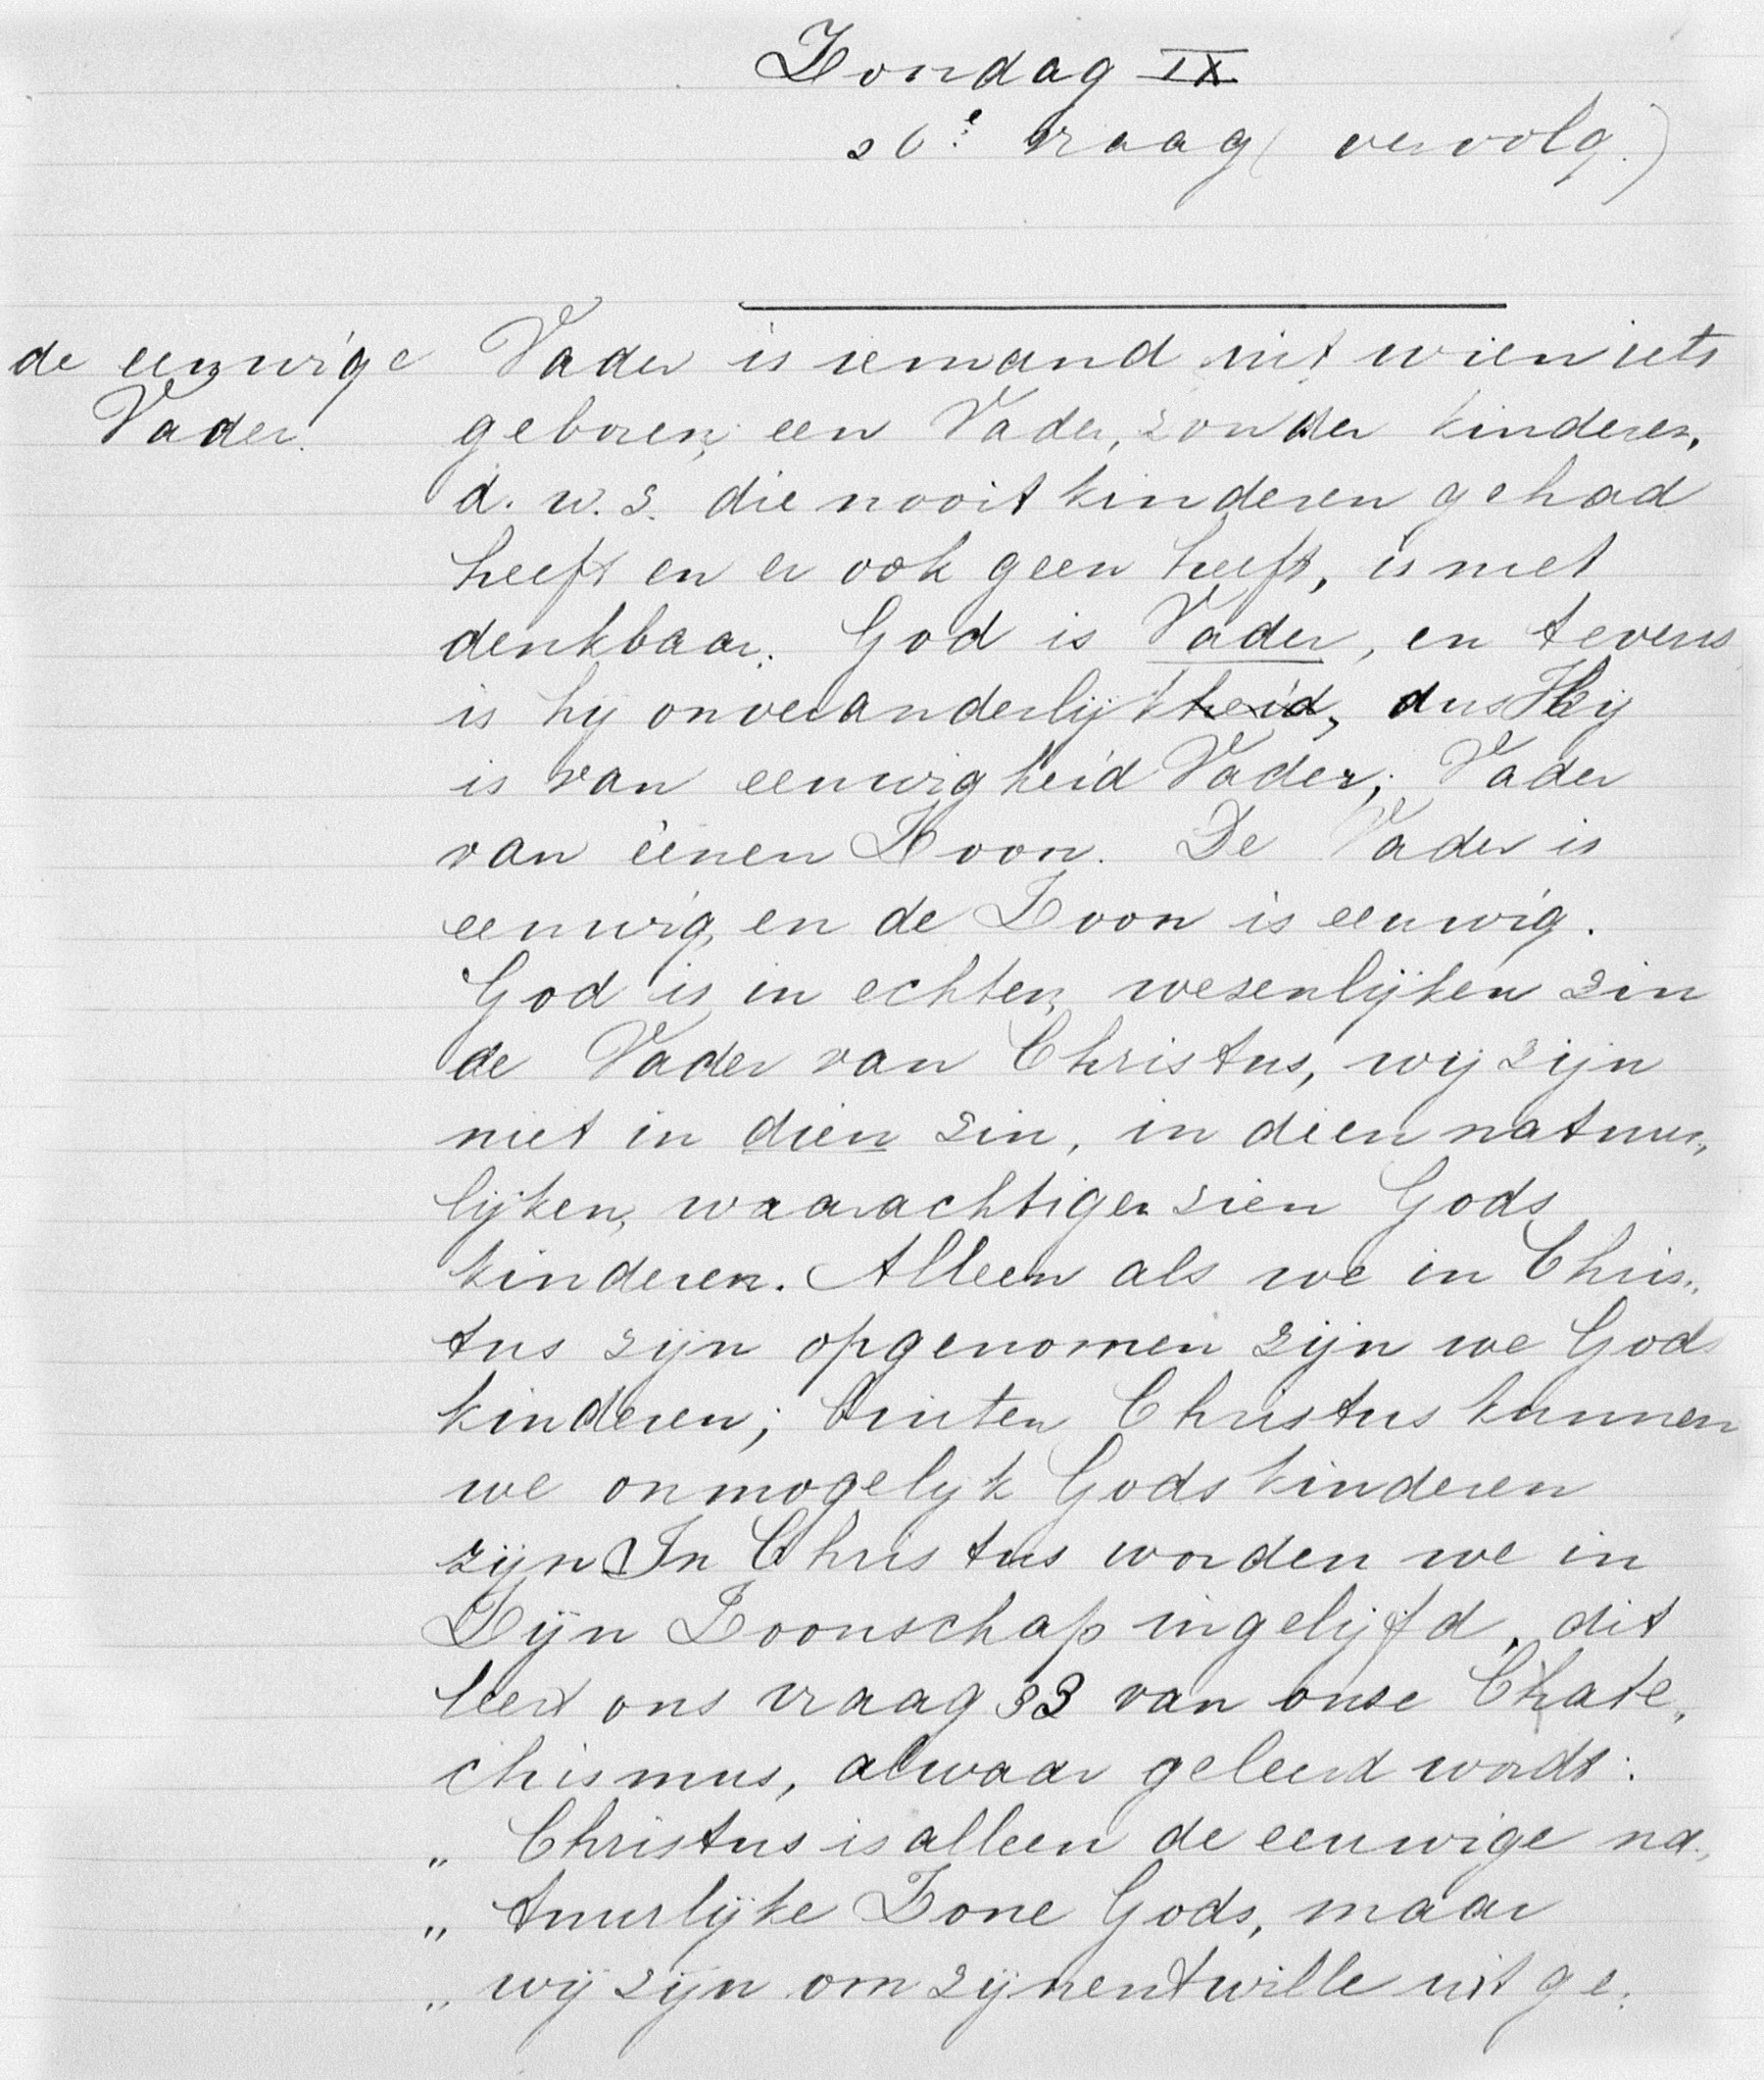 Zondag IX
26e vraag (vervolg.)
de eeuwige
Vader.
Vader is iemand uit wien iets
geboren, een Vader, zonder kinderen,
d. w. z. die nooit kinderen gehad
heeft en er ook geen heeft, is niet
denkbaar. God is Vader, en tevens
is hij onveranderlijkheid, dus Hij
is van eeuwigheid Vader; Vader
van éénen Zoon. De Vader is
eeuwig, en de Zoon is eeuwig.
God is in echten, wezenlijken zin
de Vader van Christus, wij zijn
niet in dien zin, in dien natuur„
lijken, waarachtigen zien Gods
kinderen. Alleen als we in Chris„
tus zijn opgenomen zijn we Gods
kinderen; buiten Christus kunnen
we onmogelijk Gods kinderen
zijn In Christus worden we in
Zijn Zoonschap ingelijfd, dit
leert ons vraag 33 van onze Chate„
chismus, alwaar geleerd wordt:
„ Christus is alleen de eeuwige na„
„ tuurlijke Zone Gods, maar
„ wij zijn om zijnentwille uit ge„